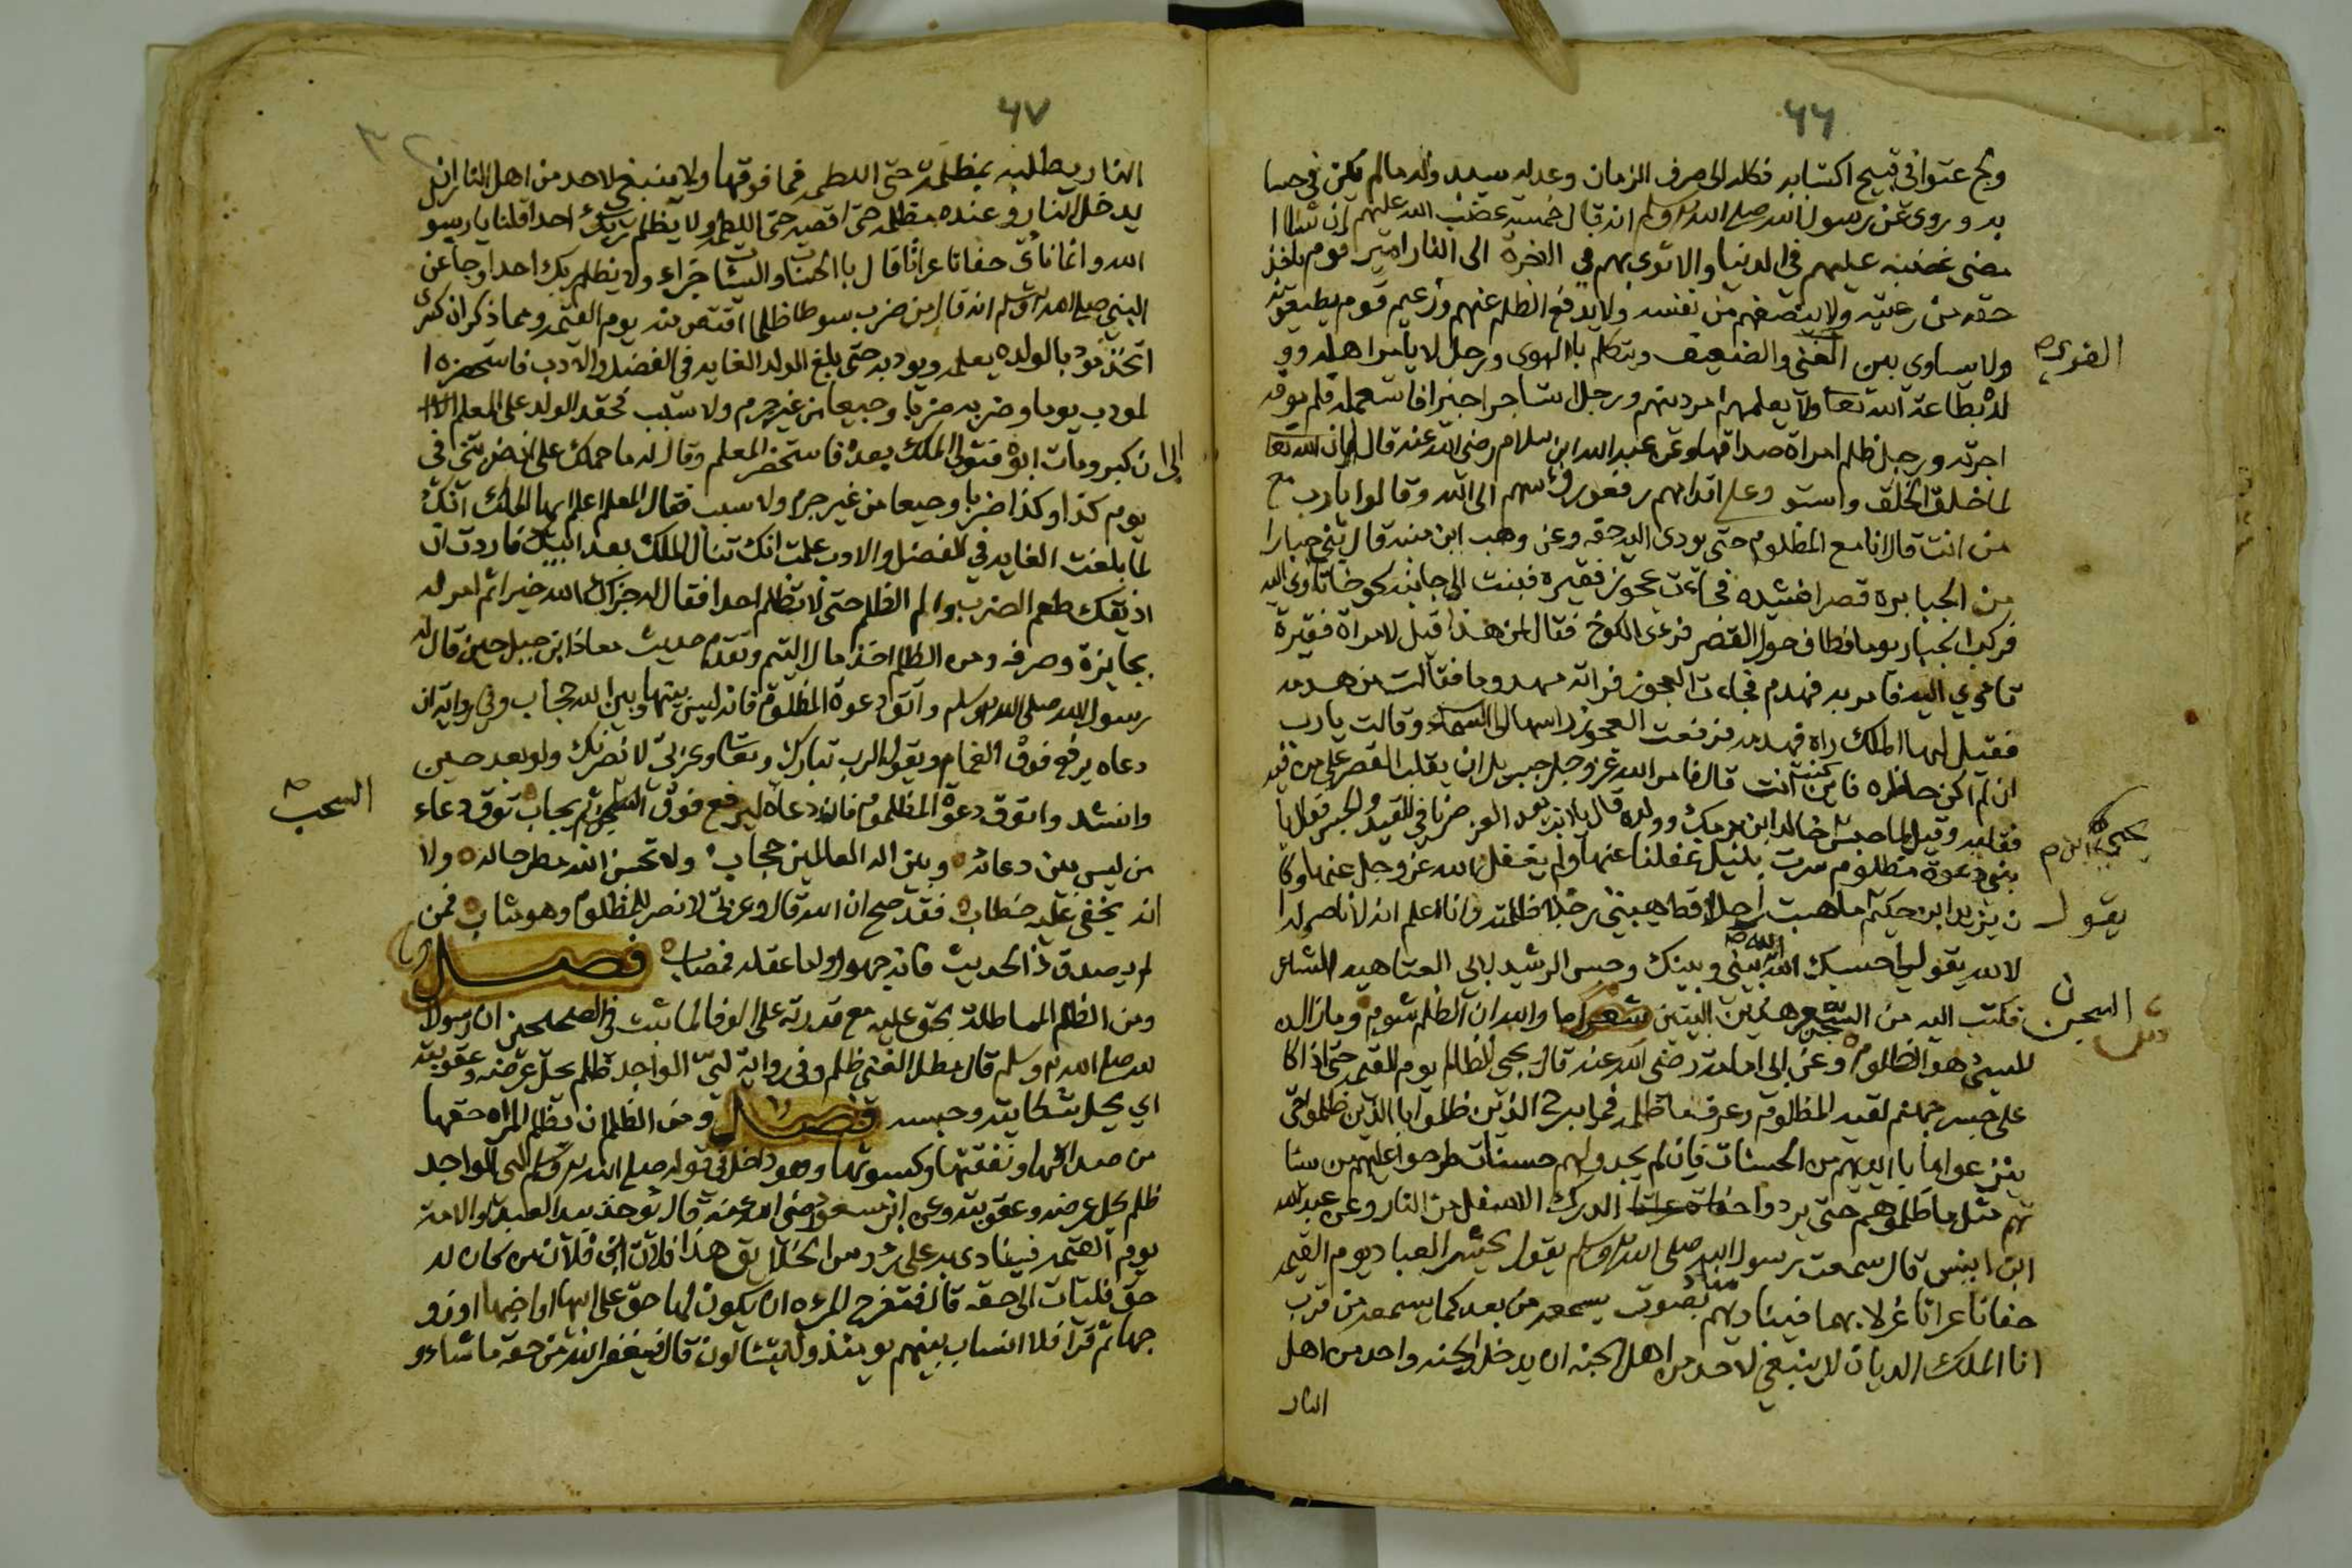 ٦٦
ولج عتوا في قبيح اكتسابه فكله الى صرف الزمان وعدله سيبدو له مالم يكن في حسا
به وروى عن رسول الله صلى الله عليه وسلم انه قال خمسة غضب الله عليهم ان شاء ا
مضى غضبه عليهم في الدنيا والا ثوى بهم في الاخرة الى النار امير قوم ياخذ
حقه من رعيته ولا ينصفهم من نفسه ولا يدفع الظلم عنهم وزعيم قوم يطيعونه
ولا يساوى بين الغنى والضعيف ويتكلم بالهوى ورجل لا يامر اهله وو
القوى ص
لده بطاعة الله تعا ولا يعلمهم امر دينهم ورجل استاجر اجيرا فاستعمله فلم يوفه
اجرته ورجل ظلم امراة صداقها وعن عبد الله ابن سلام رضى الله عنه قال ان الله تعا
لما خلق الخلق واستو وعلى اقدامهم رفعو رؤسهم الى الله وقالوا يارب مع
من انت قال انا مع المظلوم حتى يودى اليه حقه وعن وهب ابن منبه قال بنى جبارا
من الجبابرة قصرا فشيده فجاءت عجوز فقيرة فبنت الى جانبه كوخا تاوى اليه
فركب الجبار يوما فطاف حول القصر فرءى الكوخ فقال لمن هذا قيل لامراة فقيرة
تاوي اليه فامر به فهدم فجاءت العجوز فراته مهدوما فقالت من هدمه
فقيل لها الملك راه فهدمه فرفعت العجوز راسها الى السماء وقالت يارب
ان لم اكن حاظره فاين كنت انت قال فامر الله عز وجل جبريل ان يقلب القصر على من فيه
فقلبه وقيل لما حبس خالد ابن برمك وولده قال يا ابت بعد العز صرنا في القيد والحبس فقال يا
بنى دعوة مظلوم سرت بليل غفلنا عنها ولم يغفل الله عز وجل عنها وكا
ن يزيد ابن حكيم يقول ما هبت احدا قط هيبتى رجلا ظلمته وانا اعلم انه لا ناصر له ا
لا الله يقول لى حسبك الله الله بينى وبينك وحبس الرشيد ابى العتاهيه الشاعر
فكتب اليه من السجن هذين البيتين شعر اما والله ان الظلم شوم وما زال ا
السجن
لمسئ هو الظلوم وعن ابى امامة رضى الله عنه قال يجى الظالم يوم القيمه حتى اذا كا
على جسر جهنم لقيه المظلوم وعرفه ما ظلمه فما يبرح الذين ظلموا بالذين ظلموا حتى
ينزعوا ما بايديهم من الحسنات فان لم يجدو لهم حسنات طرحوا عليهم من سيا
تهم مثل ما ظلموهم حتى يردوا الدرك الاسفل من النار وعن عبد الله
ابن انيس قال سمعت رسول الله صلى الله عليه وسلم يقول يحشر العباد يوم القيمه
حفاتا عراتا غرلا بهما فيناديهم مناد بصوت يسمعه من بعد كما يسمعه من قرب
انا الملك الديان لا ينبغى لاحد من اهل الجنه ان يدخل الجنه واحد من اهل
النار
٦٧
النار يطلبه بمظلمة حتى اللطمه فما فوقها ولا ينبغى لاحد من اهل النار ان
يدخل النار وعنده مظلمه حتى اقصه حتى اللطمه ولا يظلم ربك احدا قلنا يا رسو
الله وانما ناتى حفاتا عراتا قال بالحسنات والسيئات جزاء ولا يظلم ربك احدا وجا عن
النبى صلى الله عليه وسلم انه قال من ضرب سوطا ظلما اقتص منه يوم القيمه ومما ذكر ان كسرى
اتخذ مؤدبا لولده يعلمه ويودبه حتى بلغ الولد الغايه في الفضل والادب فاستحضره ا
لمودب يوما وضربه ضربا وجيعا من غير جرم ولا سبب فحقد الولد على المعلم
الى ان كبر ومات ابوه فتولى الملك بعده فاستحضر المعلم وقال له ما حملك على ان ضربتنى في
يوم كذا وكذا ضربا وجيعا من غير جرم ولا سبب فقال المعلم اعلم ايها الملك انك
لما بلغت الغايه في الفضل والادب علمت انك تنال الملك بعد ابيك فاردت ان
اذيقك طعم الضرب والم الظلم حتى لا تظلم احدا فقال له جزاك الله خيرا ثم امر له
بجايزة وصرفه ومن الظلم اخذ مال اليتيم وتقدم حديث معاذ ابن جبل حين قال له
رسول الله صلى الله عليه وسلم واتق دعوة المظلوم فانه ليس بينها وبين الله حجاب وفي رواية ان
دعاه يرفع فوق الغمام ويقول الرب تبارك وتعا وعزتى لانصرنك ولو بعد حين
وانشد واتوق دعوة المظلوم فان دعاه ليرفع فوق ثم يجاب توق دعاء
السحب ص
من ليس بين دعائه وبين اله العالمين حجاب ولا تحسبن الله مطرحا له ولا
انه يخفى عليه خطاب فقد صح ان الله قال وعزتى لانصر المظلوم وهو مثاب فمن
لم يصدق ذا الحديث فانه جهول واما عقله فمصاب فصل
ومن الظلم المماطلة بحق عليه مع قدرته على الوفا لما ثبت في الصحيحين ان رسول ا
لله صلى الله عليه وسلم قال مطل الغنى ظلم وفي رواية لىّ الواجد ظلم يحل عرضه وعقوبته
اي يحل شكايته وحبسه فصل ومن الظلم ان يظلم المراه حقها
من صداقها ونفقتها وكسوتها وهو داخل في قوله صلى الله عليه وسلم لىّ الواجد
ظلم يحل عرضه وعقوبته وعن ابن مسعود رضى الله عنه قال يوخذ بيد العبد والامة
يوم القيمه فينادى به على رؤوس الخلايق هذا فلان ابن فلان من كان له
حق فليات الى حقه قال فتفرح المرءه ان يكون لها حق على ابيها او اخيها او زو
جها ثم قرا فلا انساب بينهم يومئذ ولا يتسالون قال فيغفر الله من حقه ما شاء و